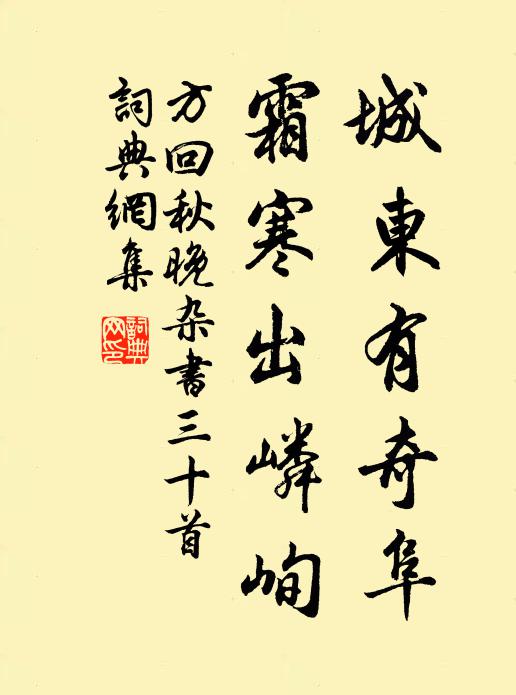 城東有奇阜
霜寒出嶙峋
方回秋晚杂書三十首
詞典網集
詞典网印